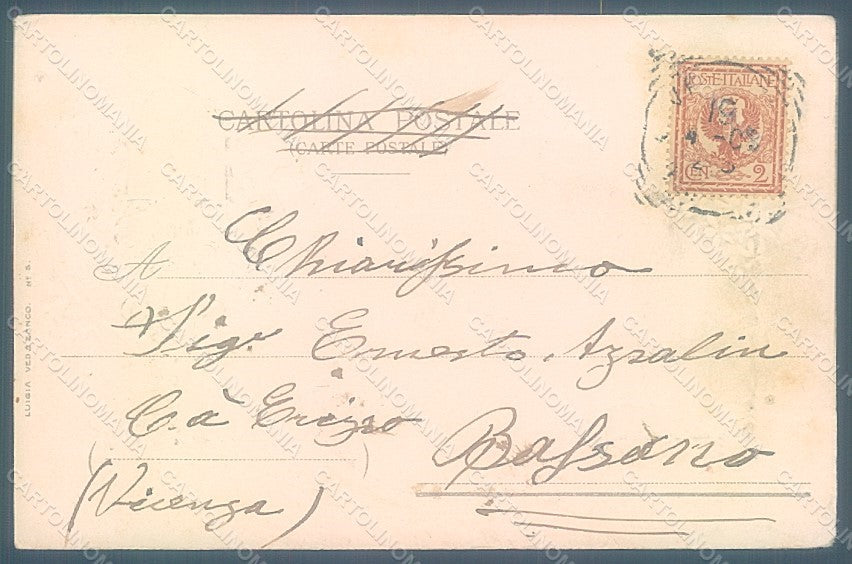 CARTOLINA POSTALE
(CARTE POSTALE)
POSTE·ITALIANE
CEN 2
19
4 -05
A Chiarissimo
Sigr Ernesto Azzalin
Cà Erizzo
Bassano
(Vicenza)
LUIGIA VEDAZANCO. N° 5.
CARTOLINOMANIA